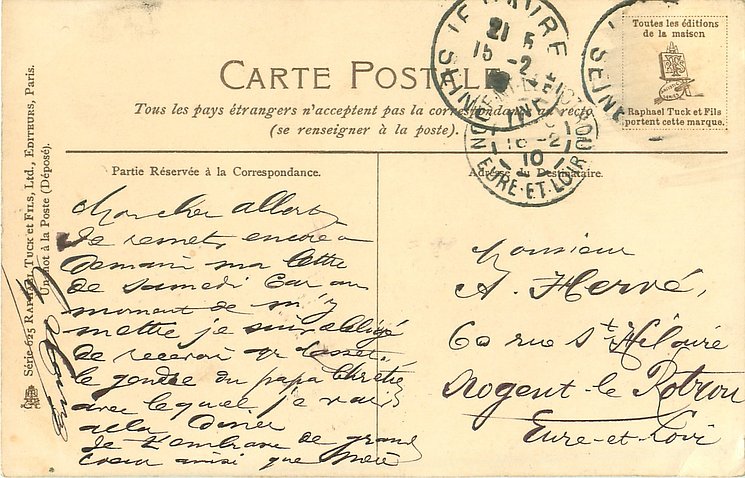 CARTE POSTALE
Tous les pays étrangers n'acceptent pas la correspondance au recto
(se renseigner à la poste).
Toutes les éditions
de la maison
Raphael Tuck et Fils
portent cette marque.
LE HAVRE
21 5
15 -2
SEINE INF
NOGENT-LE-ROTROU
16-2
10
EURE-ET-LOIR
SEINE
Série 625 RAPHAEL TUCK ET FILS, LTD., EDITEURS, Paris.
Un mot à la Poste (Déposé).
Partie Réservée à la Correspondance.
Mon cher Albert
Je remets encore a
demain ma lettre
de samedi car au
moment de m'y
mettre je suis obligé
de recevoir Mr
le gendre du papa Chrétien
avec lequel je vais
aller diner
Je t'embrasse de grand
coeur ainsi que mère
Adresse du Destinataire.
Monsieur
A. Hervé,
60 rue St Hilaire
Nogent-le Rotrou
Eure-et-Loir